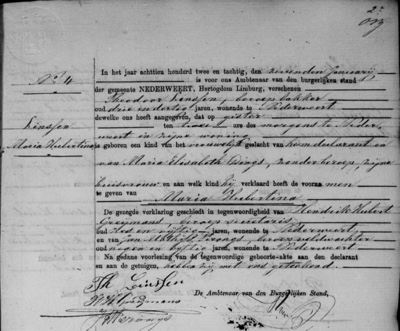 N° 4
Linssen
Maria Hubertina
In het jaar achttien honderd twee en tachtig, den zevenden januarij
is voor ons Ambtenaar van den burgerlijken stand
der gemeente NEDERWEERT, Hertogdom Limburg, verschenen
Theodoor Linssen, beroep bakker
oud drie en dertig jaren, wonende te Nederweert
dewelke ons heeft aangegeven, dat op gister
ten twee ure des morgens te Neder-
weert in zijne woning
is geboren een kind van het vrouwelijk geslacht van hem declarant en
van Maria Elisabeth zonder beroep, zijne
huisvrouw en aan welk kind hij verklaard heeft de voornamen
te geven van
Maria Hubertina
De gezegde verklaring geschiedt in tegenwoordigheid van Hendrik Hubert
beroep secretaris
oud en vijftig jaren, wonende te Nederweert
en van beroep veldwachter
oud negen en vijftig jaren, wonende te Nederweert
Na gedane voorlezing van de tegenwoordige geboorte-akte aan den declarant
en aan de getuigen, hebben zij met ons geteekend.
Th Linssen
De Ambtenaar van den Burgerlijken Stand,